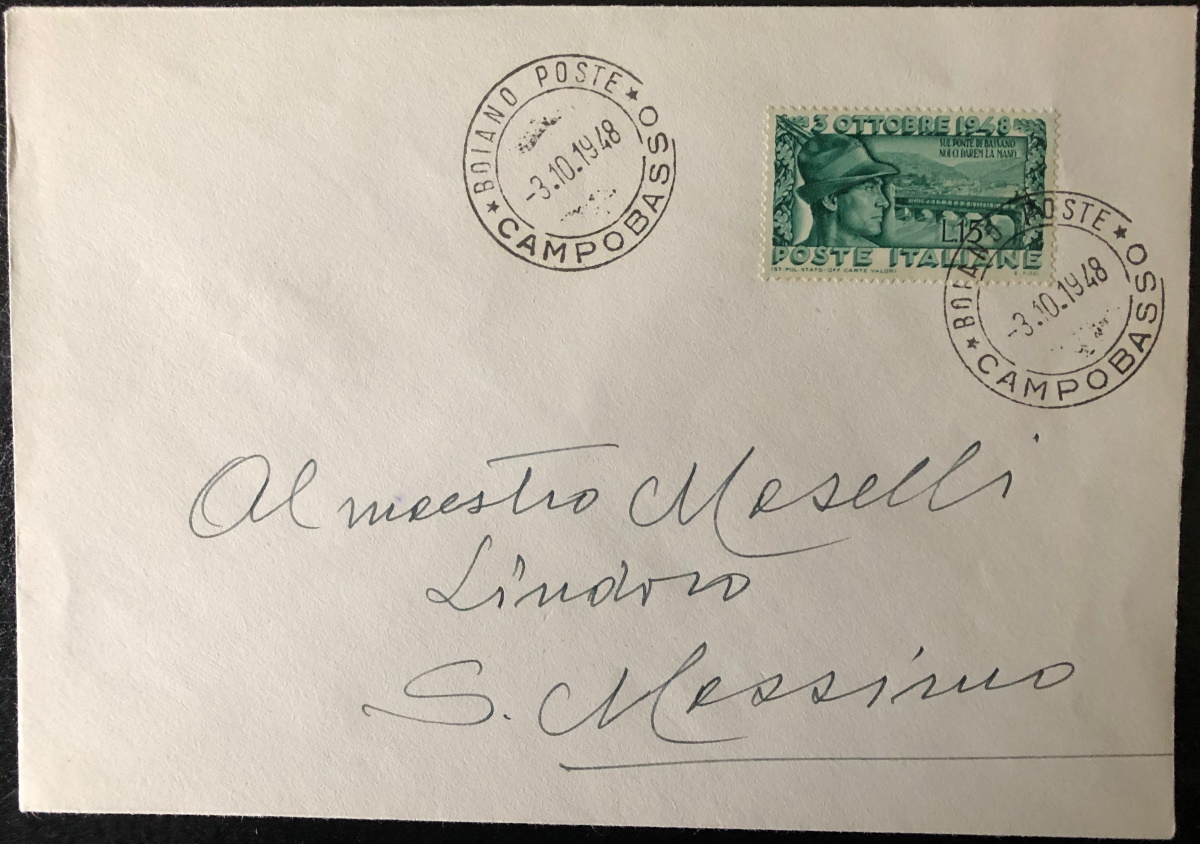 BOIANO POSTE
-3.10.1948
CAMPOBASSO
3 OTTOBRE 1948
SUL PONTE DI BASSANO
NOI CI DAREM LA MANO...
L.15
POSTE ITALIANE
IST. POL. STATO-OFF. CARTE VALORI
BOIANO POSTE
-3.10.1948
CAMPOBASSO
Al maestro Maselli
Lindoro
S. Massimo